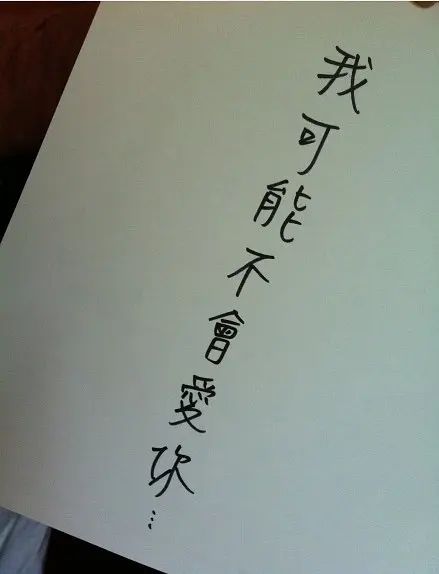 我可能不會愛妳...